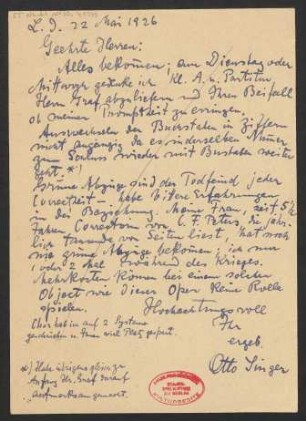 L. D. 22 Mai 1926
Geehrte Herren:
Alles bekommen; am Dienstag oder
Mittwoch gedenke ich Kl. A. u. Partitur
Herrn Graf abzuliefern und Ihren Beifall
ob meiner Promptheit zu erringen.
Auswechseln der Buchstaben in Ziffern
nicht angängig da es in derselben Nummer
zum Schluss wieder mit Buchstaben weiter
geht. *)
Grüne Abzüge sind der Todfeind jeder
Correctheit – habe bittere Erfahrungen
in der Beziehung. Meine Frau, seit 5 1/2
Jahren Correctorin von C. F. Peters die jähr-
lich tausende von Seiten liest, hat noch
nie grüne Abzüge bekommen; ich nur
1 oder 2 Mal während des Krieges.
Mehrkosten können bei einem solchen
Object wie dieser Oper keine Rolle
spielen.
Hochachtungsvoll
Ihr
ergeb.
Otto Singer
Chor hab ich auf 2 Systeme
geschrieben u. Ihnen viel Platz gespart.
*) Habe übrigens schon zu
Anfang Hr. Graf darauf
aufmerksam gemacht.